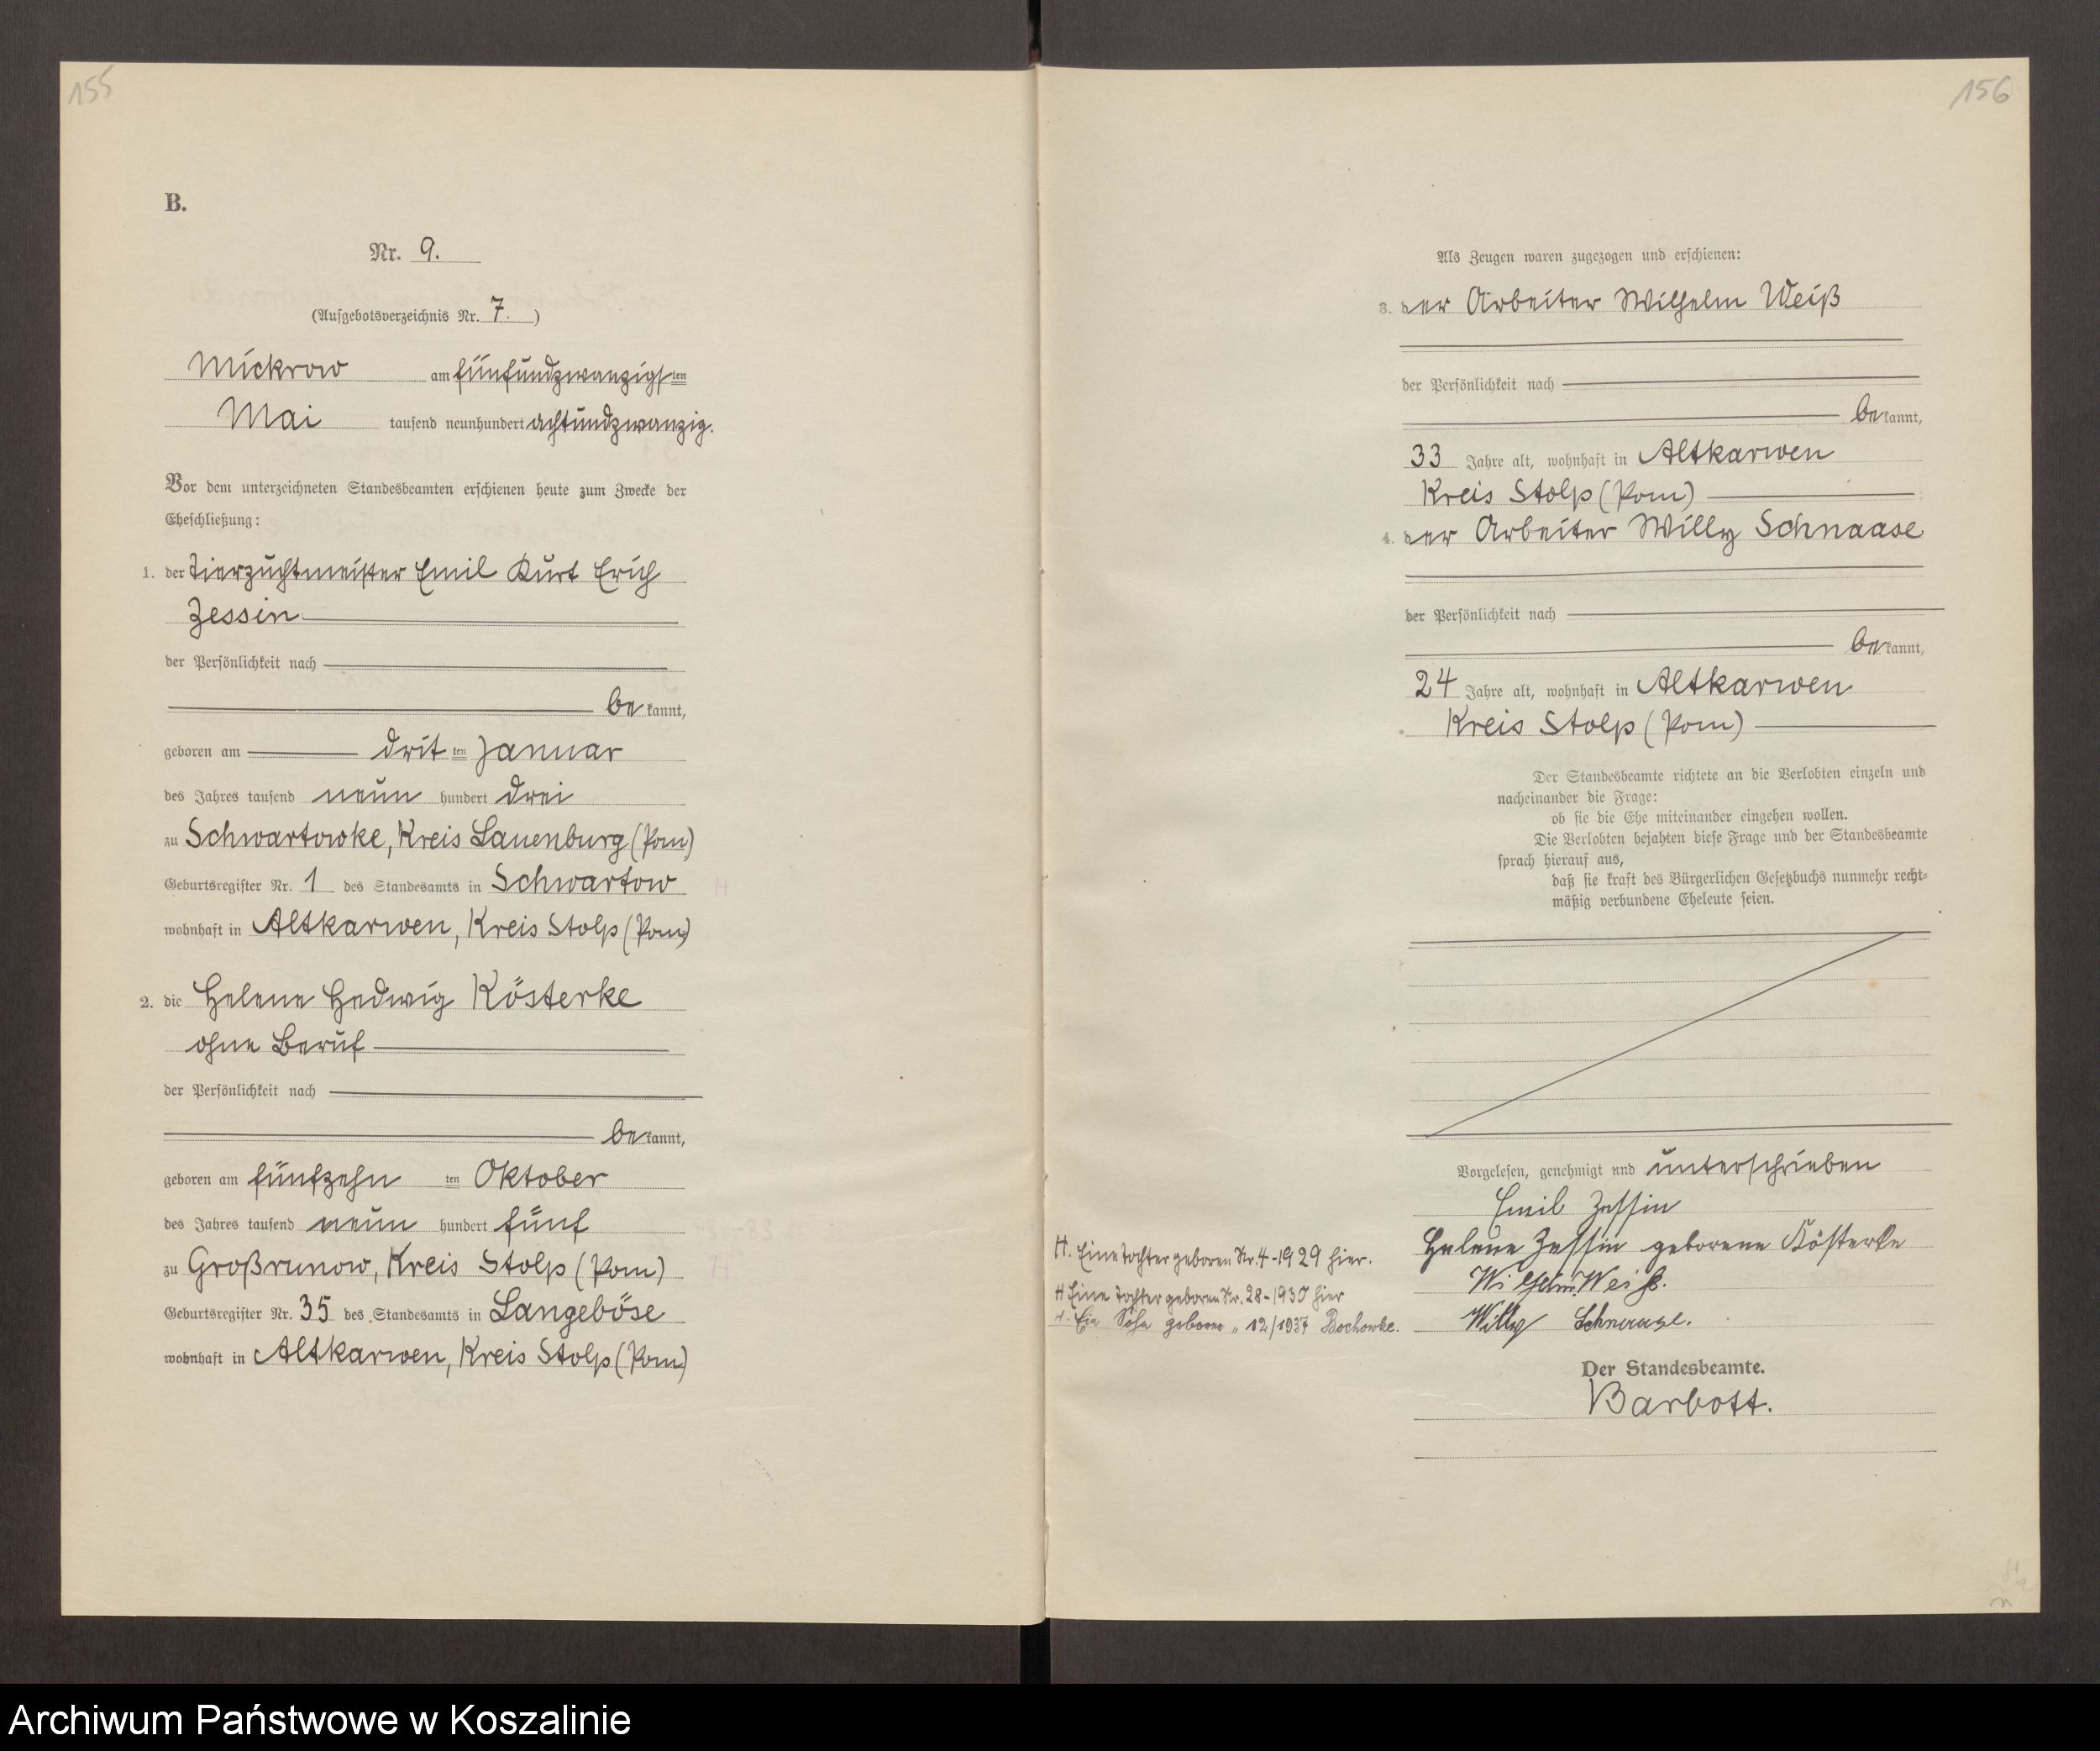 155
B.
Nr. 9.
(Aufgebotsverzeichnis Nr. 7.)
Mickrow am fünfundzwanzigsten
Mai tausend neunhundert achtundzwanzig.
Vor dem unterzeichneten Standesbeamten erschienen heute zum Zwecke der
Eheschließung:
1. der Tierzuchtmeister Emil Kurt Erich
Zessin
der Persönlichkeit nach
be kannt,
geboren am dritten Januar
des Jahres tausend neun hundert drei
zu Schwartowke, Kreis Lauenburg (Pom)
Geburtsregister Nr. 1 des Standesamts in Schwartow
wohnhaft in Altkarwen, Kreis Stolp (Pom)
2. die Helene Hedwig Kösterke
ohne Beruf
der Persönlichkeit nach
be kannt,
geboren am fünfzehn ten Oktober
des Jahres tausend neun hundert fünf
zu Großrunow, Kreis Stolp (Pom)
Geburtsregister Nr. 35 des Standesamts in Langeböse
wohnhaft in Altkarwen, Kreis Stolp (Pom)
156
Als Zeugen waren zugezogen und erschienen:
3. der Arbeiter Wilhelm Weiß
der Persönlichkeit nach
be kannt,
33 Jahre alt, wohnhaft in Altkarwen
Kreis Stolp (Pom)
4. der Arbeiter Willy Schnaase
der Persönlichkeit nach
be kannt,
24 Jahre alt, wohnhaft in Altkarwen
Kreis Stolp (Pom)
Der Standesbeamte richtete an die Verlobten einzeln und
nacheinander die Frage:
ob sie die Ehe miteinander eingehen wollen.
Die Verlobten bejahten diese Frage und der Standesbeamte
sprach hierauf aus,
daß sie kraft des Bürgerlichen Gesetzbuchs nunmehr recht-
mäßig verbundene Eheleute seien.
Vorgelesen, genehmigt und unterschrieben
Emil Zessin
Helene Zessin geborene Kösterke
Wilhelm Weiß.
Willy Schnaase.
Der Standesbeamte.
Barbott.
H. Eine Tochter geboren Nr. 4-1929 hier.
H Eine Tochter geboren Nr. 28-1930 hier
H. Ein Sohn geboren „ 12/1937 Bochowke.
Archiwum Państwowe w Koszalinie